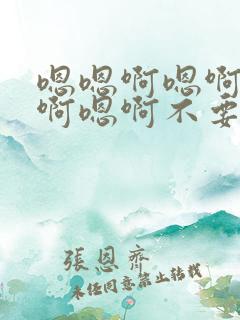 嗯嗯啊嗯啊
啊嗯啊不要
張恩齊
未经同意禁止转载